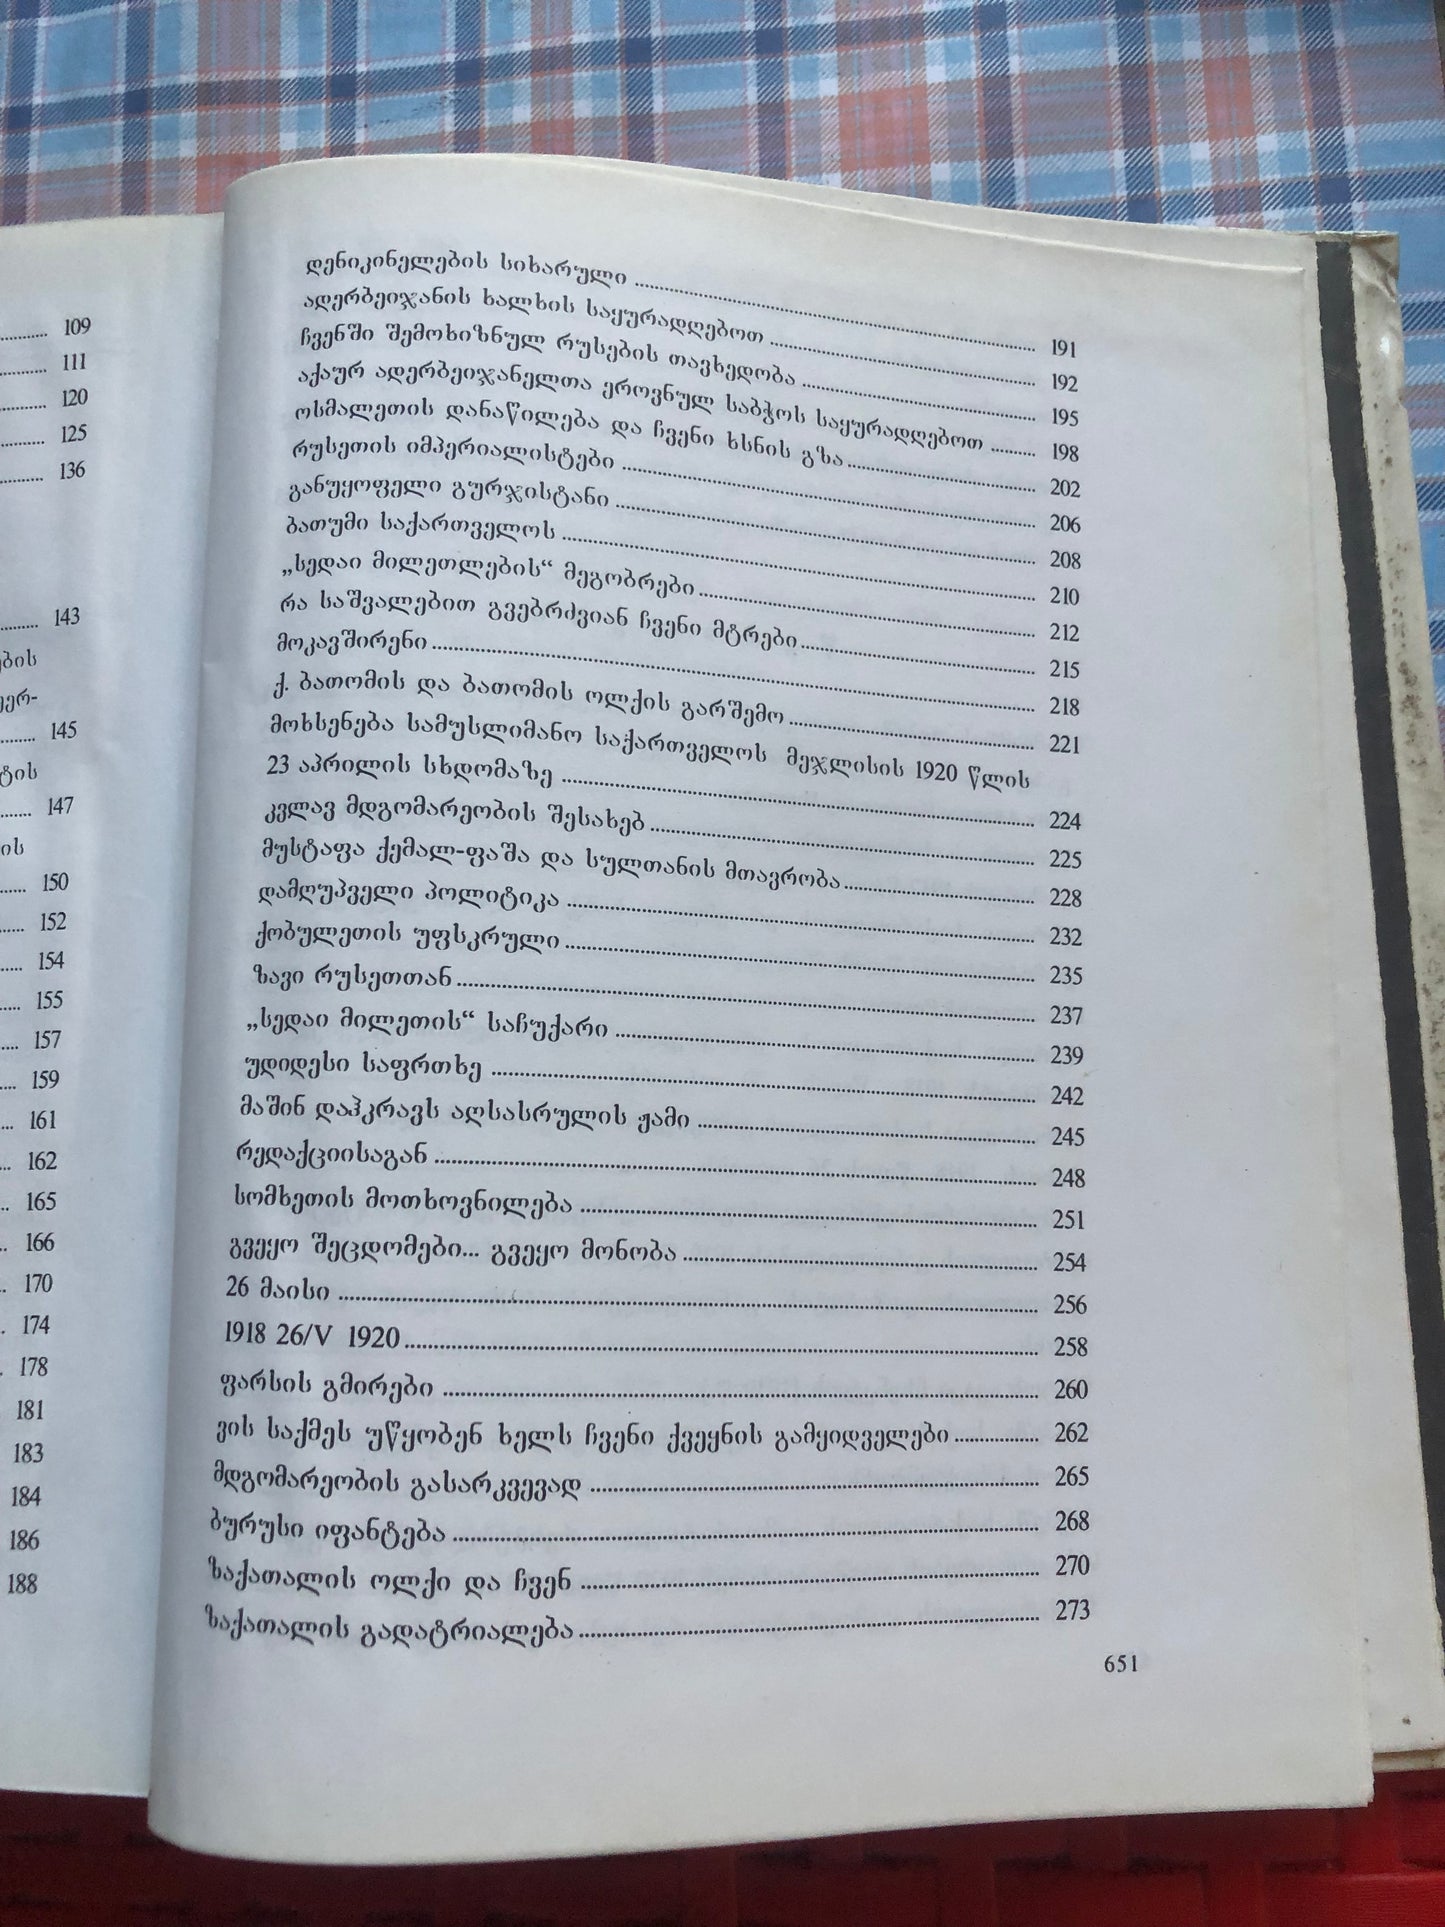 109
111
120
125
136
143
ების
145
ტის
147
ის
150
152
154
155
157
159
161
162
165
166
170
174
178
181
183
184
186
188
დენიკინელების სიხარული ........ 191
ადერბეიჯანის ხალხის საყურადღებოთ ........ 192
ჩვენში შემოხიზნულ რუსების თავხედობა ........ 195
აქაურ ადერბეიჯანელთა ეროვნულ საბჭოს საყურადღებოთ ........ 198
ოსმალეთის დანაწილება და ჩვენი ხსნის გზა ........ 202
რუსეთის იმპერიალისტები ........ 206
განუყოფელი გურჯისტანი ........ 208
ბათუმი საქართველოს ........ 210
„სედაი მილეთლების“ მეგობრები ........ 212
რა საშვალებით გვებრძვიან ჩვენი მტრები ........ 215
მოკავშირენი ........ 218
ქ. ბათომის და ბათომის ოლქის გარშემო ........ 221
მოხსენება სამუსლიმანო საქართველოს მეჯლისის 1920 წლის
23 აპრილის სხდომაზე ........ 224
კვლავ მდგომარეობის შესახებ ........ 225
მუსტაფა ქემალ-ფაშა და სულთანის მთავრობა ........ 228
დამღუპველი პოლიტიკა ........ 232
ქობულეთის უფსკრული ........ 235
ზავი რუსეთთან ........ 237
„სედაი მილეთის“ საჩუქარი ........ 239
უდიდესი საფრთხე ........ 242
მაშინ დაჰკრავს აღსასრულის ჟამი ........ 245
რედაქციისაგან ........ 248
სომხეთის მოთხოვნილება ........ 251
გვეყო შეცდომები... გვეყო მონობა ........ 254
26 მაისი ........ 256
1918 26/V 1920 ........ 258
ფარსის გმირები ........ 260
ვის საქმეს უწყობენ ხელს ჩვენი ქვეყნის გამყიდველები ........ 262
მდგომარეობის გასარკვევად ........ 265
ბურუსი იფანტება ........ 268
ზაქათალის ოლქი და ჩვენ ........ 270
ზაქათალის გადატრიალება ........ 273
651